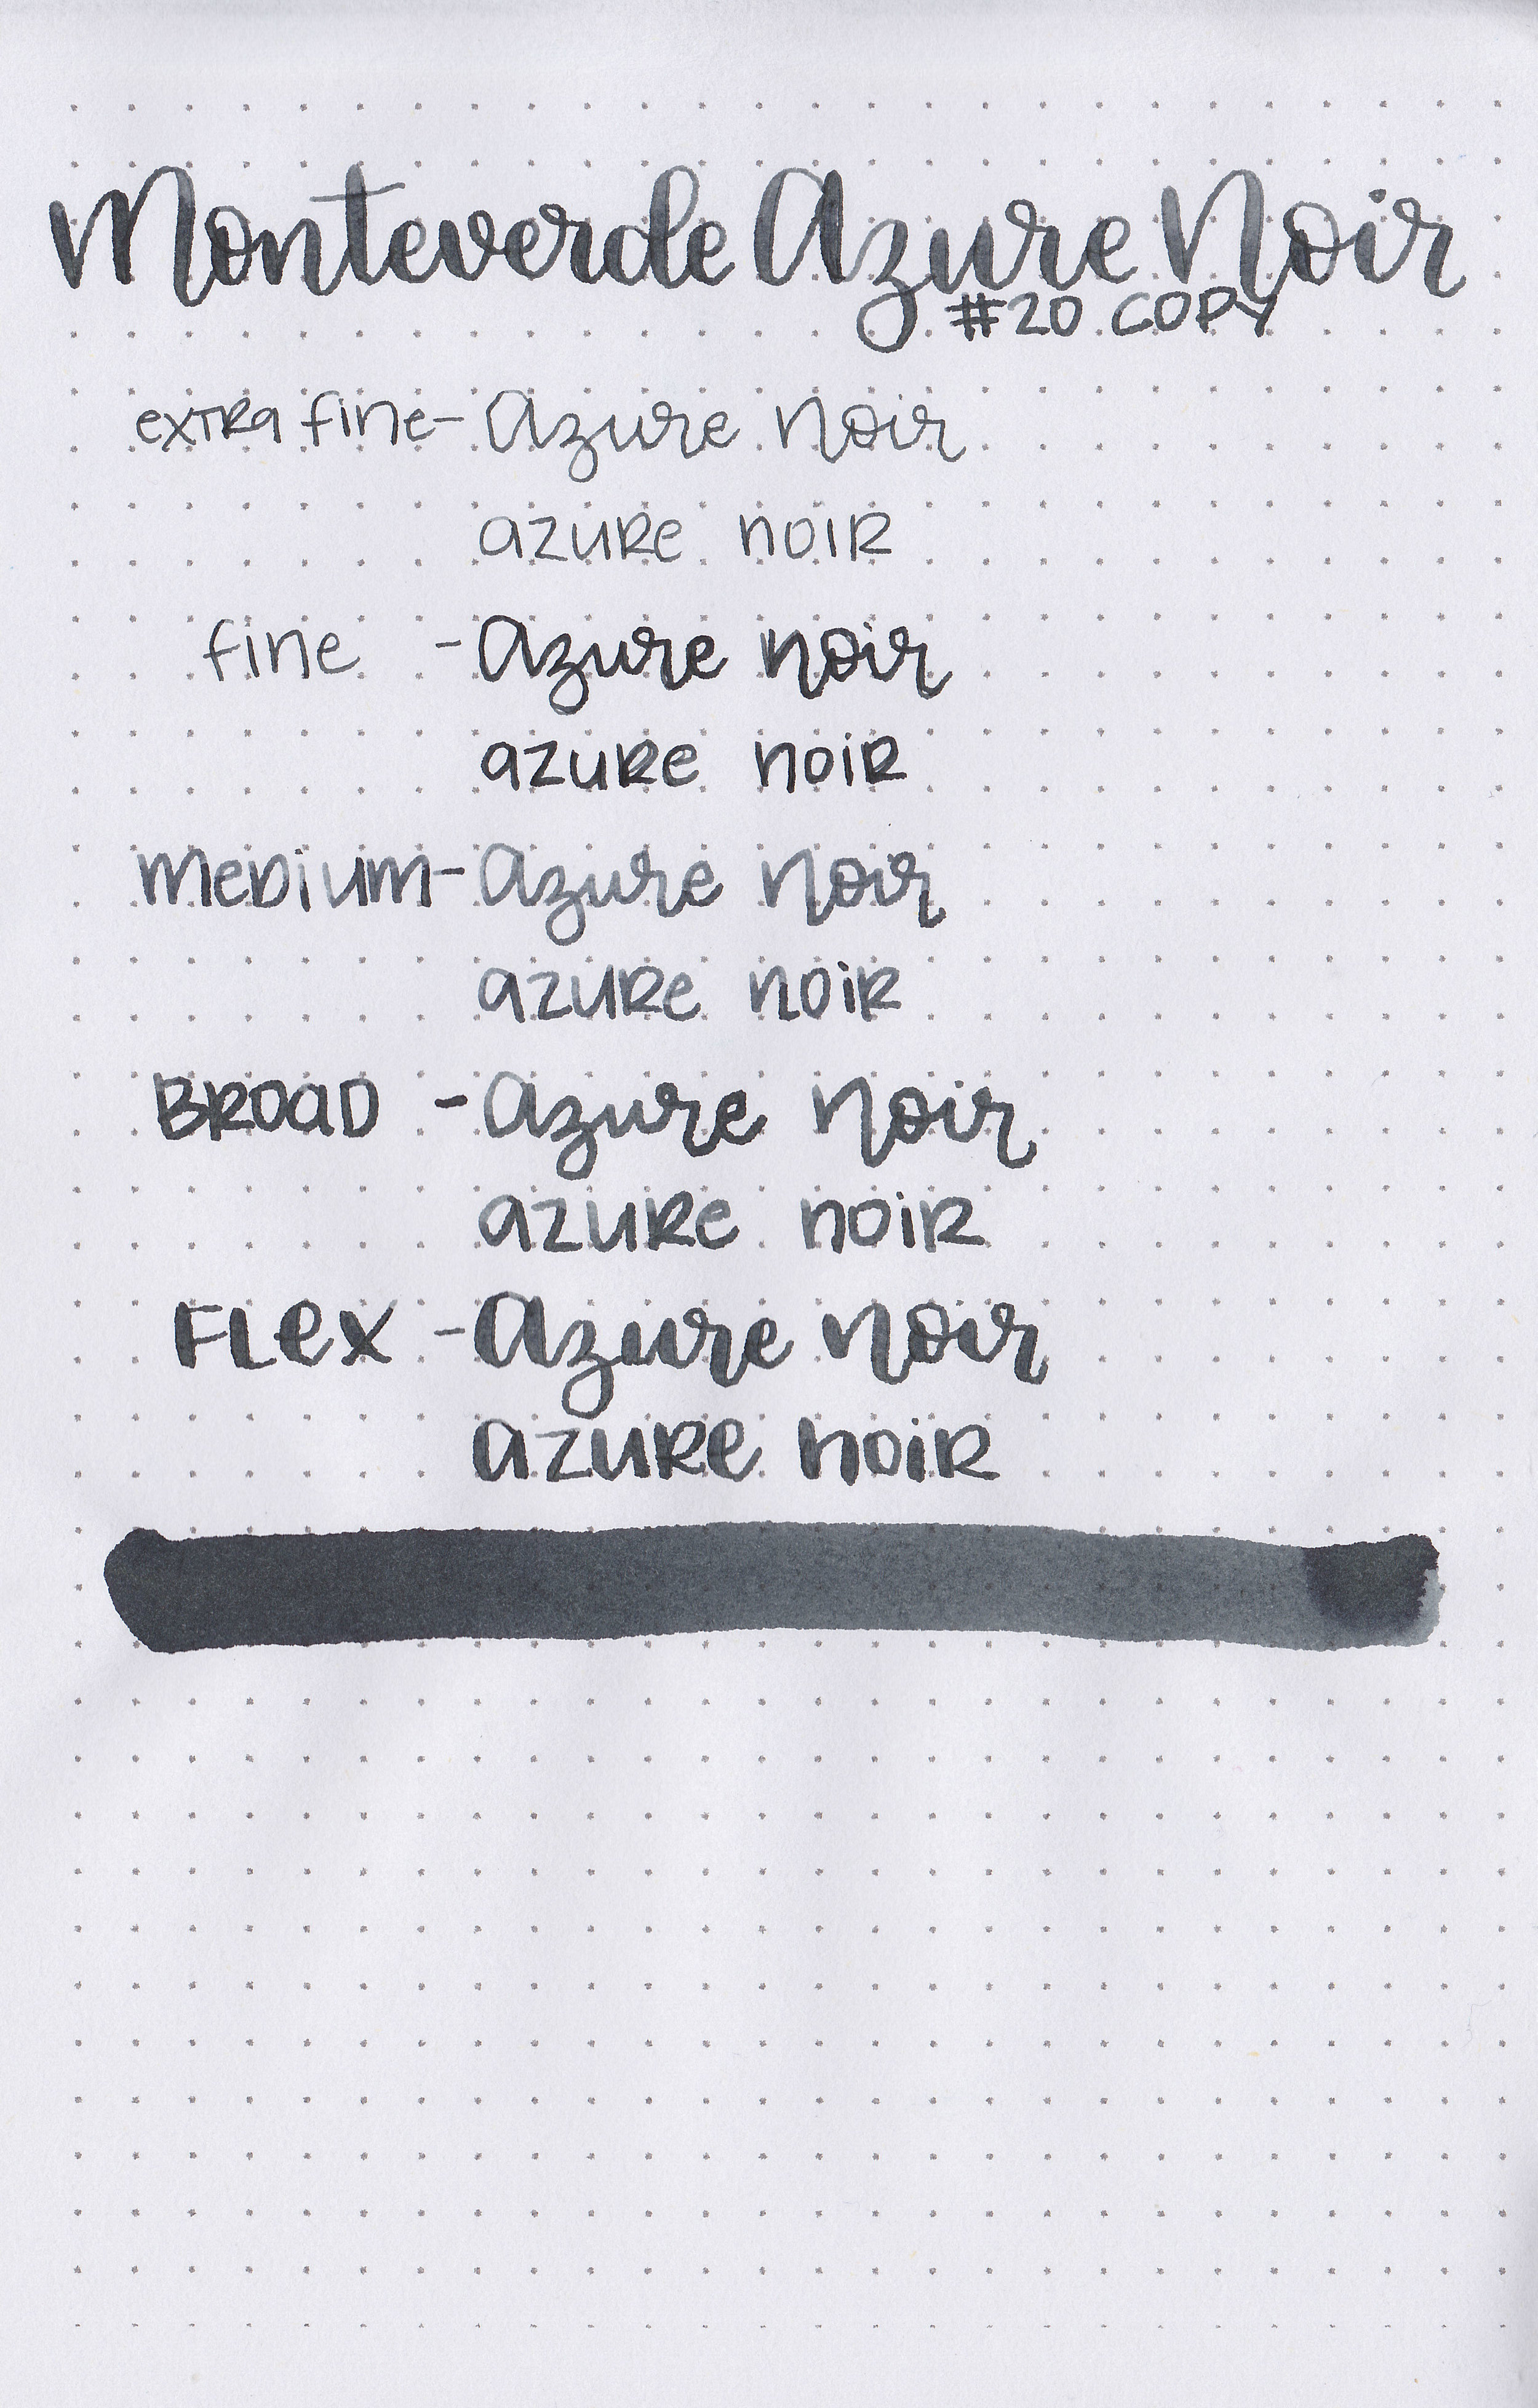 Monteverde Azure Noir
#20 COPY
extra fine - Azure Noir
azure noir
fine - Azure noir
azure noir
Medium - Azure Noir
azure noir
BROAD - Azure Noir
azure noir
FLex - Azure Noir
azure noir